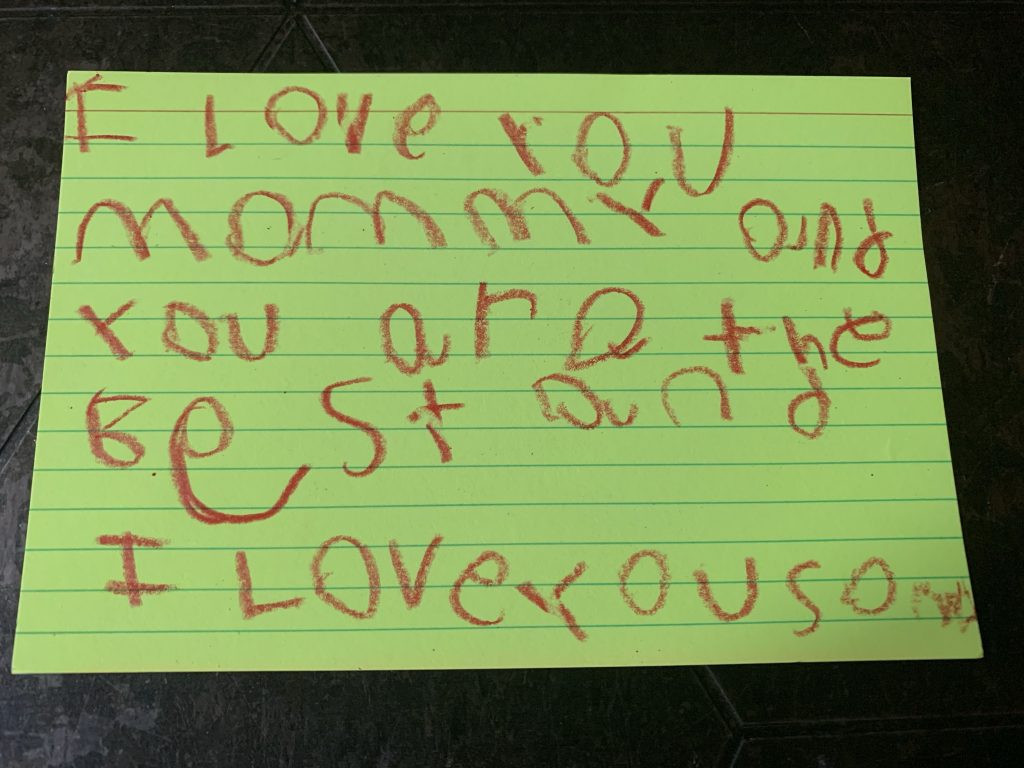 I Love you
mommy and
you are the
Best and
I Love you so